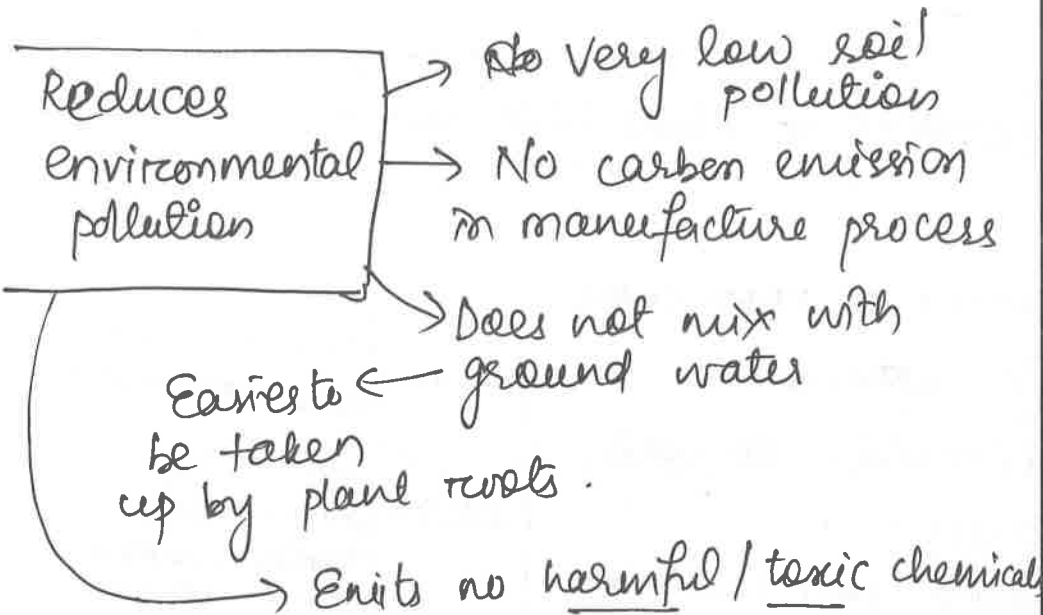 Reduces
environmental
pollution
Very low soil
pollution
No carbon emission
in manufacture process
Does not mix with
ground water
Easier to
be taken
up by plant roots.
Emits no harmful / toxic chemicals